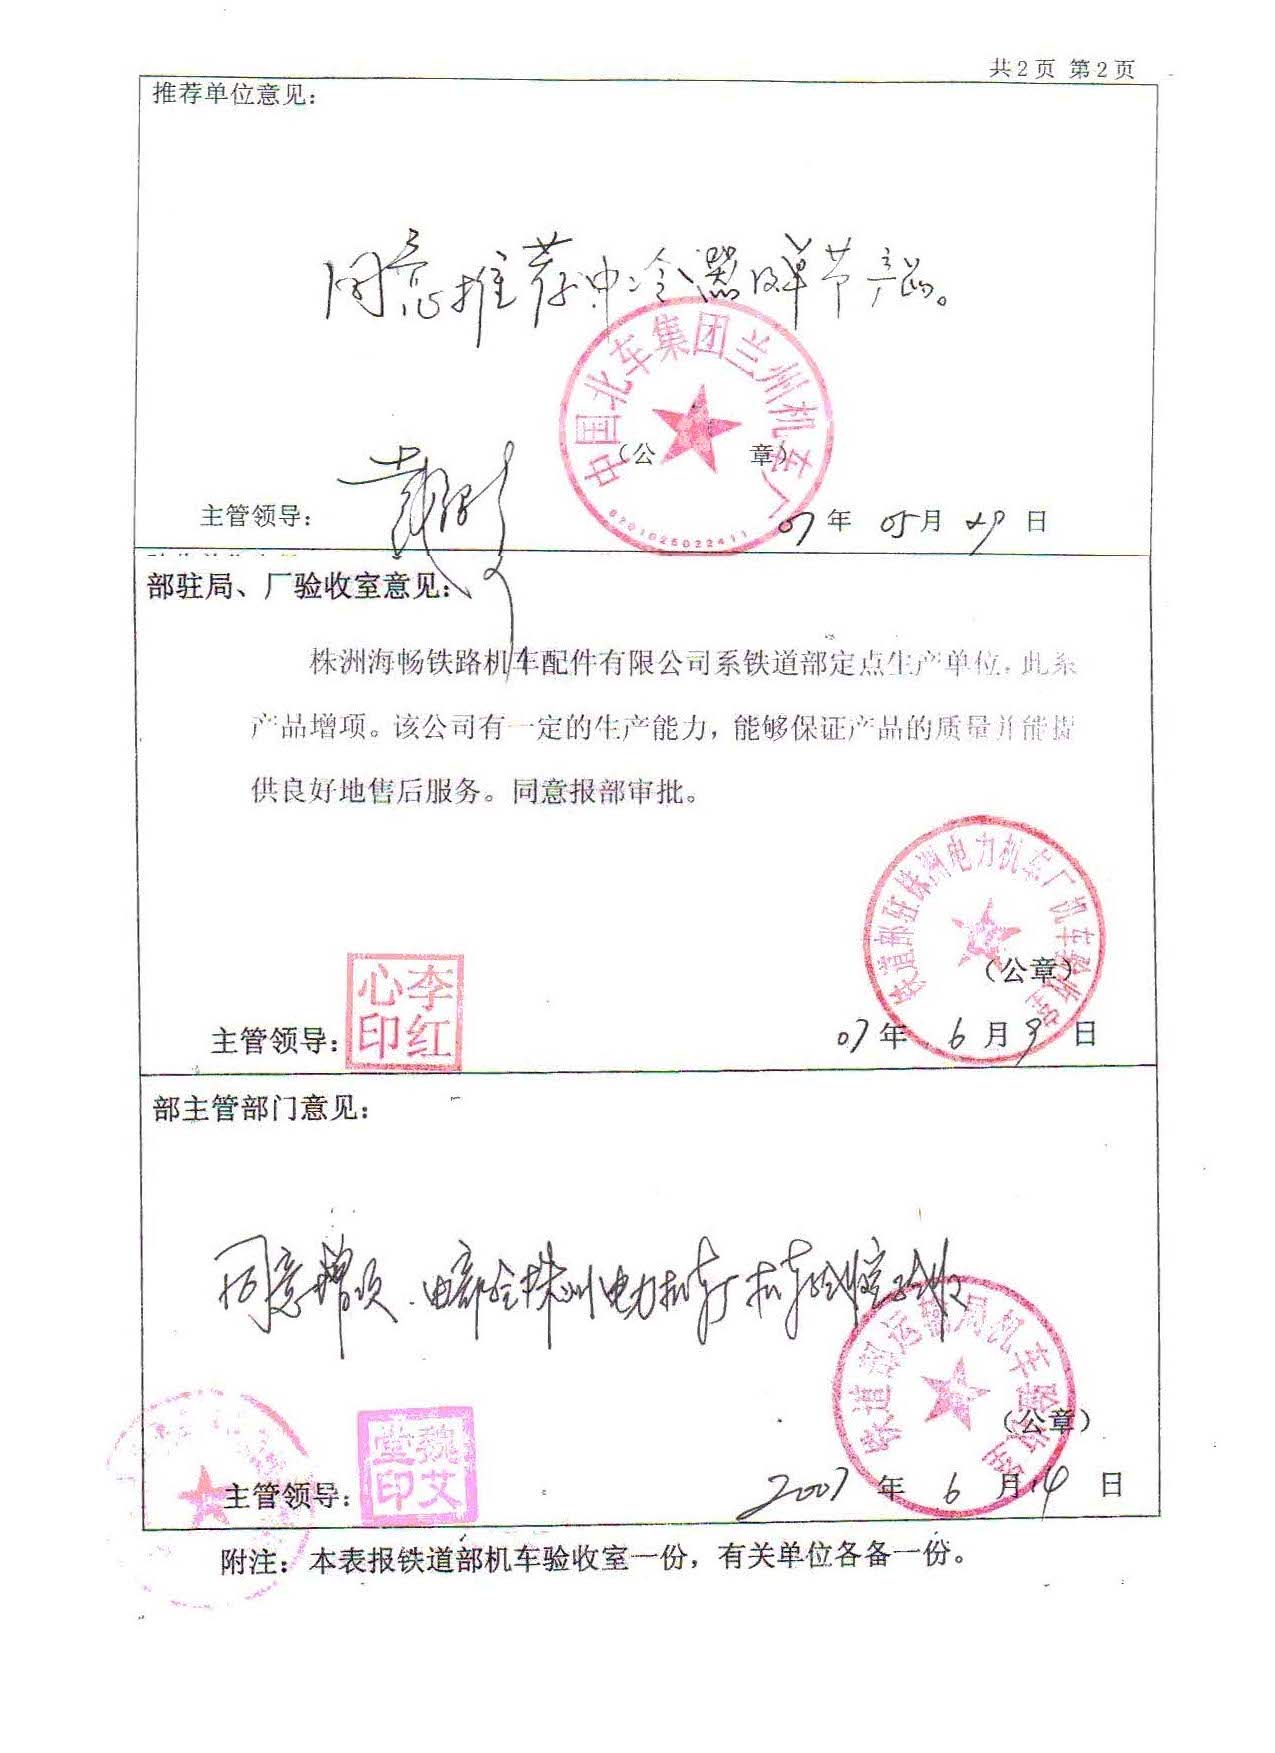 共2页 第2页
推荐单位意见：
同意推荐中冷器及单节产品。
中国北车集团兰州机车厂
（公 章）
6201025022411
主管领导：
07年 05月 29日
部驻局、厂验收室意见：
株洲海畅铁路机车配件有限公司系铁道部定点生产单位，此系
产品增项。该公司有一定的生产能力，能够保证产品的质量并能提
供良好地售后服务。同意报部审批。
铁道部驻株洲电力机车厂机车验收室
（公章）
李红心印
主管领导：
07年 6月 日
部主管部门意见：
同意增项，由部驻株洲电力机车厂机车验收室验收
铁道部运输局机车验收室
（公章）
魏艾堂印
主管领导：
2007年 6月14日
附注：本表报铁道部机车验收室一份，有关单位各备一份。